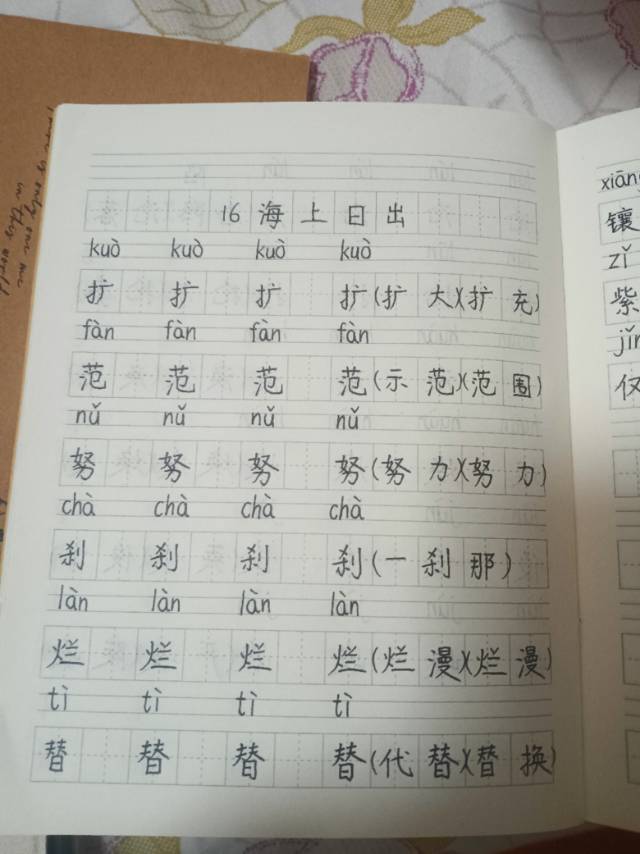 16 海上日出
kuò kuò kuò kuò
扩 扩 扩 扩(扩大)(扩充)
fàn fàn fàn fàn
范 范 范 范(示范)(范围)
nǔ nǔ nǔ nǔ
努 努 努 努(努力)(努力)
chà chà chà chà
刹 刹 刹 刹(一刹那)
làn làn làn làn
烂 烂 烂 烂(烂漫)(烂漫)
tì tì tì tì
替 替 替 替(代替)(替换)
镶
zǐ
紫
仅